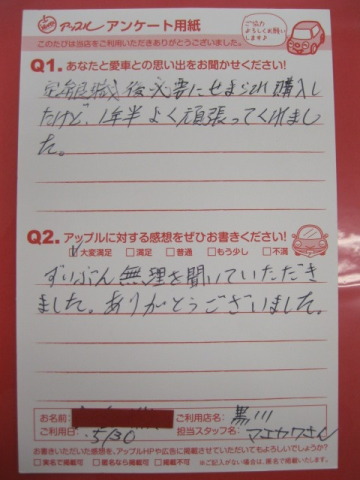 アップル アンケート用紙
ご協力
よろしくお願い
します♪
このたびは当店をご利用いただきありがとうございました。
Q1. あなたと愛車との思い出をお聞かせください!
定年退職後必要にせまられ購入し
たけど、1年半よく頑張ってくれまし
た。
Q2. アップルに対する感想をぜひお書きください!
☑大変満足 □満足 □普通 □もう少し □不満
ずいぶん無理を聞いていただき
ました。ありがとうございました。
お名前: ご利用店名: 黒川
ご利用日: 5/30 担当スタッフ名: マエカワさん
お書きいただいた感想を、アップルHPや広告に掲載させていただいてもよろしいでしょうか?
□実名で掲載可 □匿名なら掲載可 □掲載不可 ※ご記入がない場合は、匿名で掲載いたします。